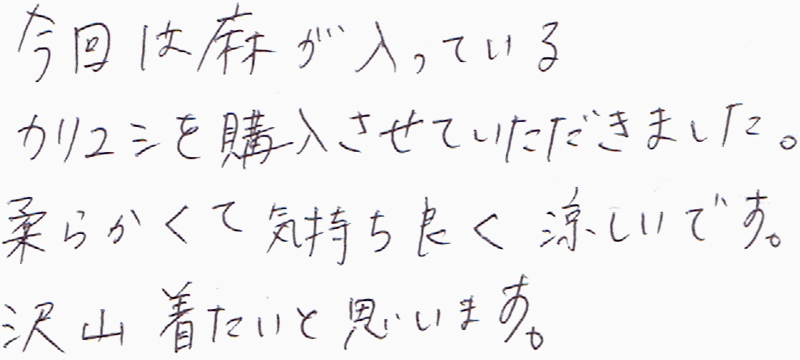 今回は麻が入っている
カリユシを購入させていただきました。
柔らかくて気持ち良く涼しいです。
沢山着たいと思います。